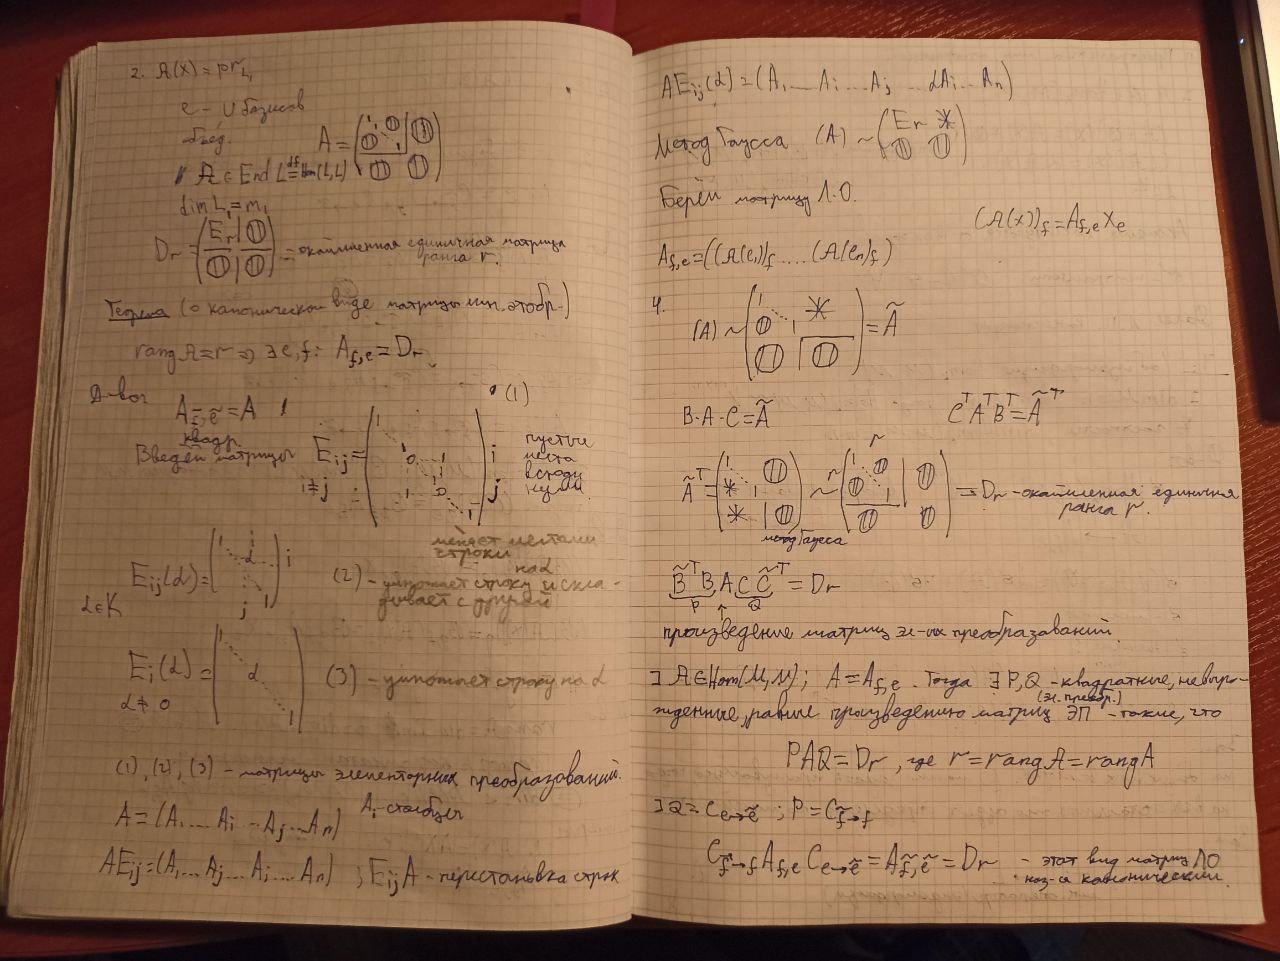 2. 𝒜(x) = pr_L₁
e - ∪ базисов
объед.
A = (1 1 0 | 0; 0 1 | 0; 0 | 0)
𝒜 ∈ End L ≝ Hom(L,L)
dim L₁ = m₁
Dᵣ = (Eᵣ | 0; 0 | 0) = окаймленная единичная матрица ранга r.
Теорема (о каноническом виде матрицы лин. отобр-)
rang 𝒜 = r ⇒ ∃ e, f: A_f,e = Dᵣ
Д-во:
A_f̃,ẽ = A
(1)
квадр.
Введём матрицы E_ij = ( 1 0 1 1 0 1 ) i j
i≠j
пустые места всюду нули.
меняет местами строки
E_ij(α) = ( 1 α 1 ) i j
α∈K
(2) - умножает строку на α и складывает с другой
E_i(α) = ( 1 α 1 )
α ≠ 0
(3) - умножает строку на α
(1), (2), (3) - матрицы элементарных преобразований.
A = (A₁ ... A_i ... A_j ... A_n) A_i - столбцы
AE_ij = (A₁ ... A_j ... A_i ... A_n) ; E_ij A - перестановка строк
AE_ij(α) = (A₁ ... A_i ... A_j ... αA_i ... A_n)
Метод Гаусса (A) ~ (Eᵣ * ; 0 0)
Берём матрицу Л.О.
(𝒜(x))_f = A_f,e x_e
A_f,e = ((𝒜(e₁))_f .... (𝒜(e_n)_f)
4.
(A) ~ (1 * ; 0 1 ; 0 | 0) = Ã
B·A·C = Ã CᵀAᵀBᵀ = Ãᵀ
Ãᵀ = (1 0 ; * 1 ; * | 0) ~ r (1 0 | 0 ; 0 1 | ; 0 | 0) = Dᵣ - окаймленная единичная ранга r.
метод Гаусса
B̃ᵀ B A C C̃ᵀ = Dᵣ
P Q
произведение матриц эл-ых преобразований.
∃ 𝒜 ∈ Hom(M, N); A = A_f,e. Тогда ∃ P, Q - квадратные, невыро-
(эл. преобр.)
жденные, равные произведению матриц ЭП - такие, что
PAQ = Dᵣ, где r = rang A = rang 𝒜
∃ Q = C_e→ẽ ; P = C_f̃→f
C_f̃→f A_f,e C_e→ẽ = A_f̃,ẽ = Dᵣ - этот вид матриц ЛО
наз-ся канонический.